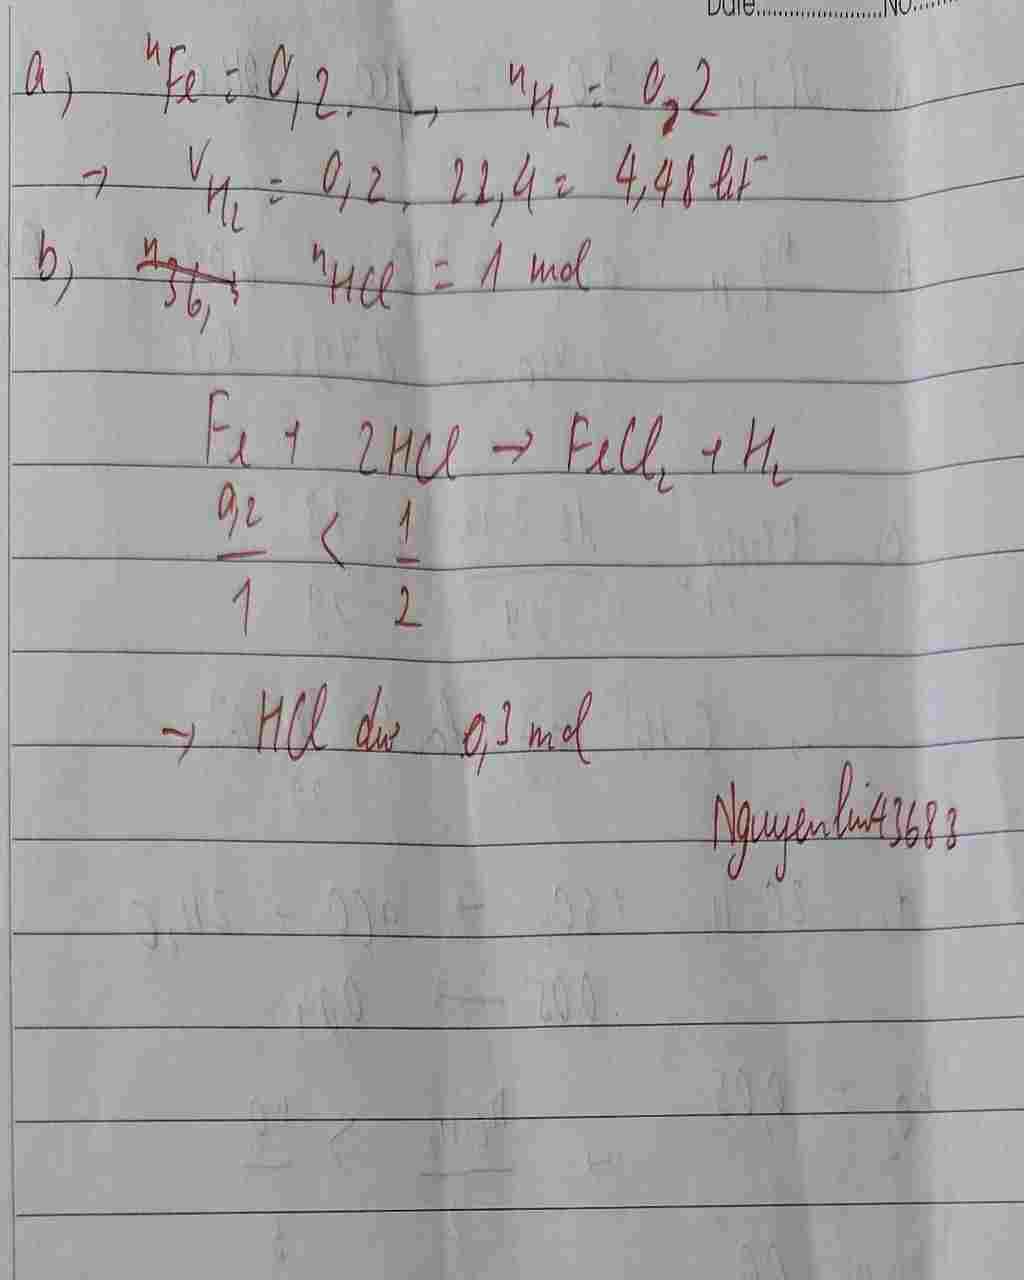 Date.....................NO.......
a) nFe = 0,2. → nH2 = 0,2
→ VH2 = 0,2. 22,4 = 4,48 lít
b) nHCl = 1 mol
Fe + 2HCl → FeCl2 + H2
0,2/1 < 1/2
→ HCl dư 0,3 mol
Nguyenlinh43683